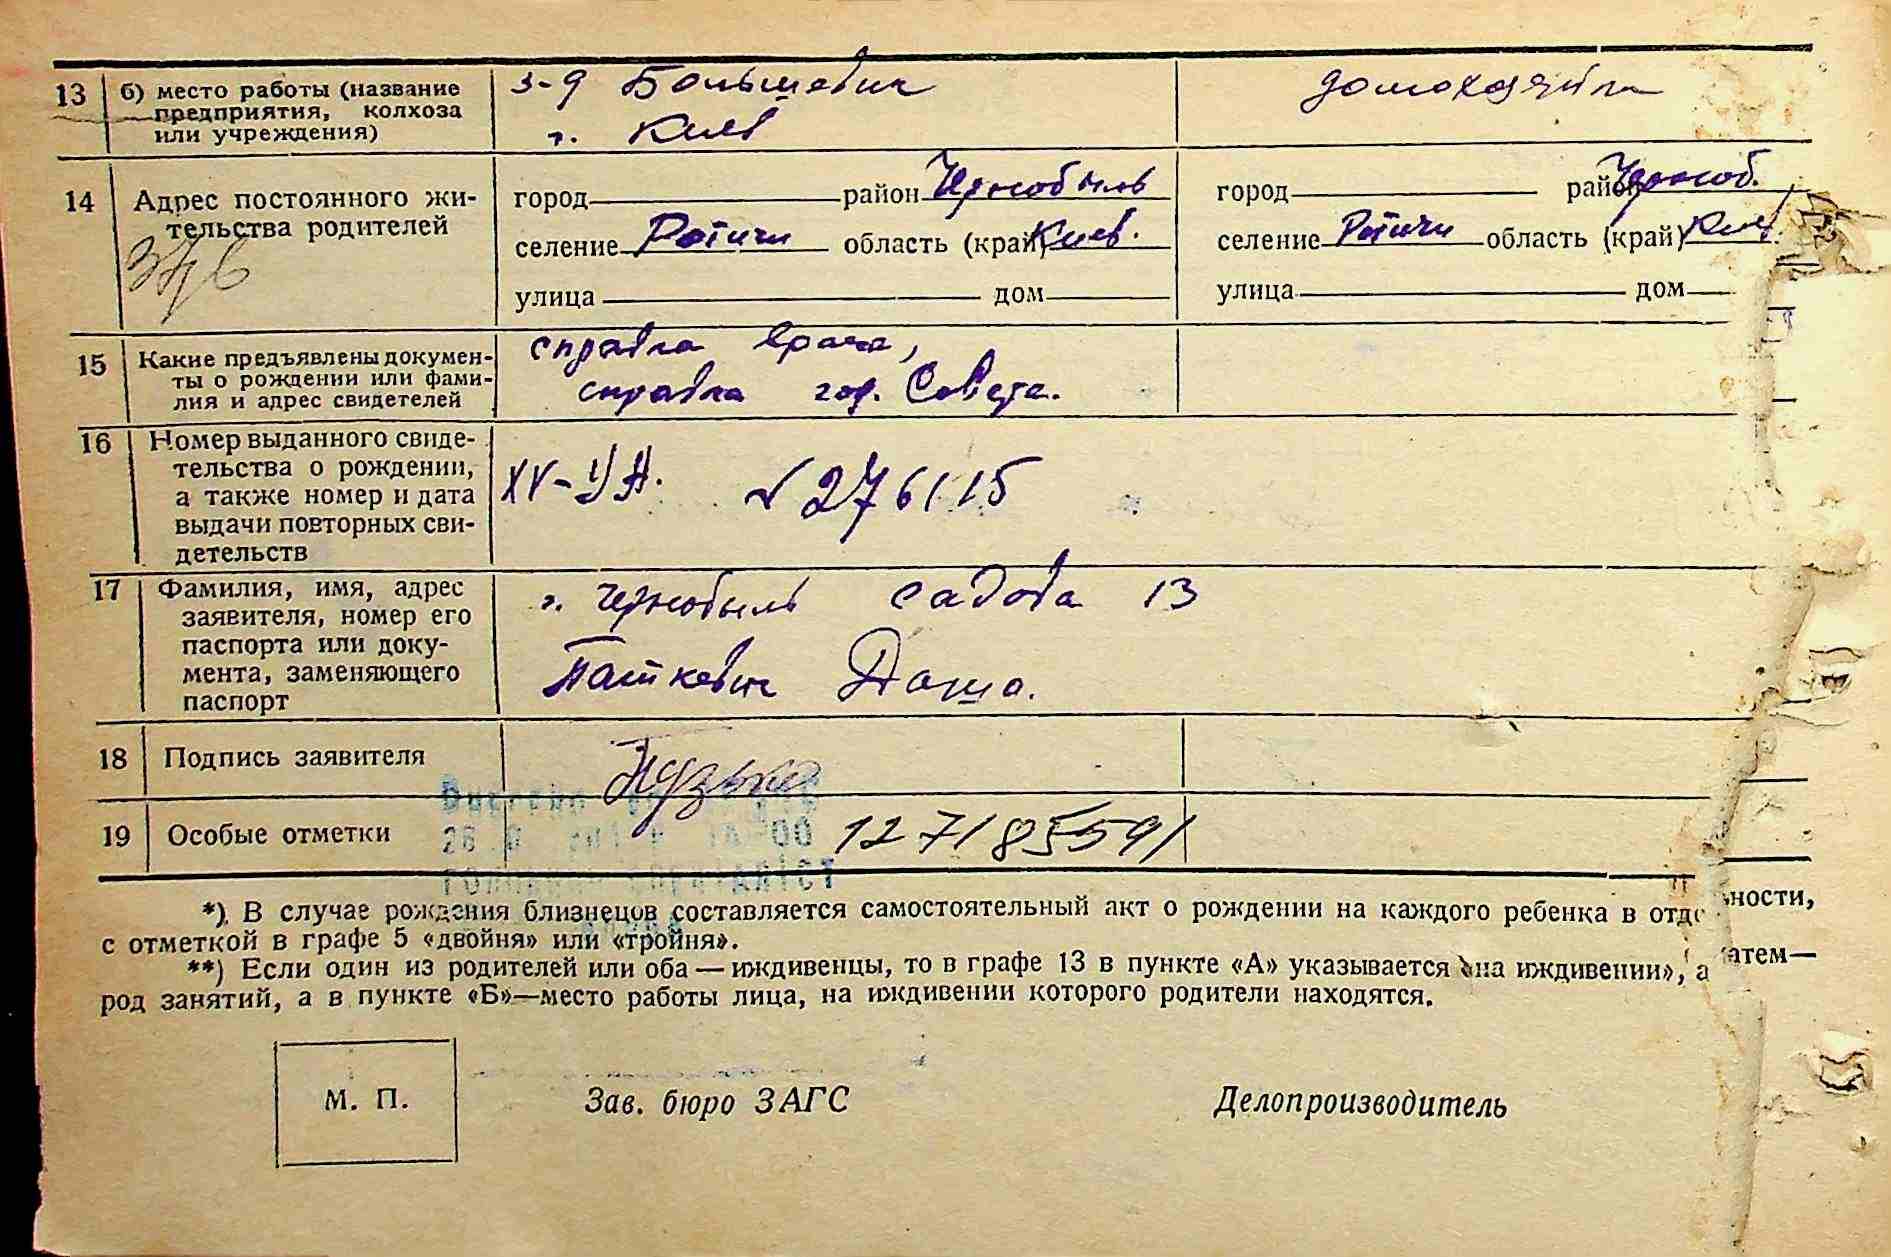 13 б) место работы (название предприятия, колхоза или учреждения)
з-д Большевик
г. Киев
домохозяйка
14 Адрес постоянного жи-
тельства родителей
город район Чернобыль
селение Ротичи область (край) Киев.
улица дом
город район Черноб.
селение Ротичи область (край) Киев
улица дом
15 Какие предъявлены докумен-
ты о рождении или фами-
лия и адрес свидетелей
справка врача,
справка гор. Совета.
16 Номер выданного свиде-
тельства о рождении,
а также номер и дата
выдачи повторных сви-
детельств
XV-УА. № 276115
17 Фамилия, имя, адрес
заявителя, номер его
паспорта или доку-
мента, заменяющего
паспорт
г. Чернобыль Садова 13
Паткевич Даша.
18 Подпись заявителя
19 Особые отметки
127185591
*) В случае рождения близнецов составляется самостоятельный акт о рождении на каждого ребенка в отд ности,
с отметкой в графе 5 «двойня» или «тройня».
**) Если один из родителей или оба — иждивенцы, то в графе 13 в пункте «А» указывается «на иждивении», а затем—
род занятий, а в пункте «Б»—место работы лица, на иждивении которого родители находятся.
М. П.
Зав. бюро ЗАГС
Делопроизводитель